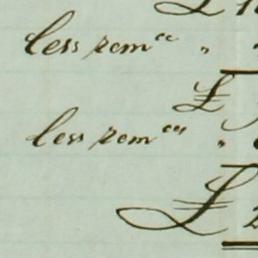 £ 1
less rem^ce "
£
less rem^ces "
£ 2